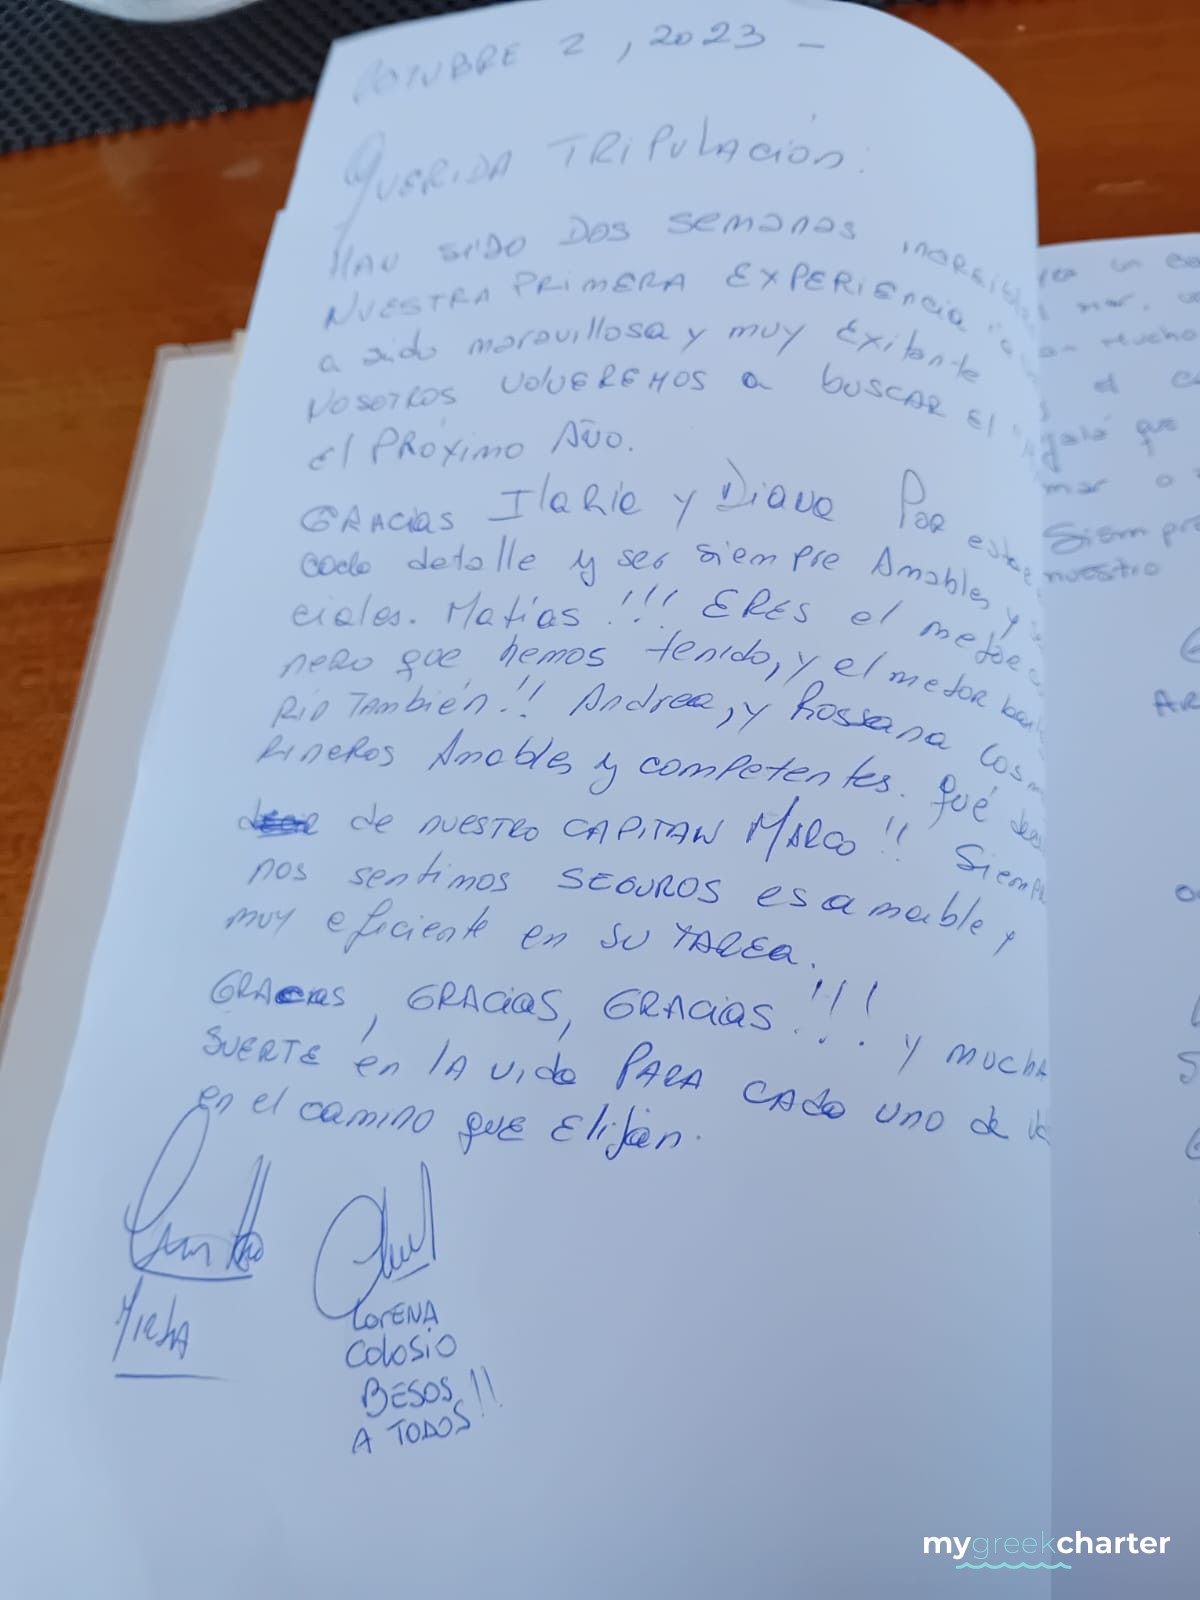 OCTUBRE 2, 2023 -
QUERIDA TRIPULACIÓN:
HAN SIDO DOS SEMANAS INCREIBLES
NUESTRA PRIMERA EXPERIENCIA
a sido maravillosa y muy Exitante
NOSOTROS VOLVEREMOS a BUSCAR El
El PRÓXIMO AÑO.
GRACIAS Ilaria y Diana Por estar
cada detalle y ser siempre Amables y
ciales. Matías!!! ERES el mejor
nero que hemos tenido, y el mejor
RIN También!! Andrea, y Rossana los m
RINEROS Amables y competentes. Qué
de nuestro CAPITAN MARCO!! Siemp
nos sentimos SEGUROS es amable y
muy eficiente en SU TAREA.
GRACIAS, GRACIAS, GRACIAS!!! y MUCHA
SUERTE en LA vida PARA CADA UNO de
en el camino que Elijan.
Mirta
LORENA
COLOSIO
BESOS!!
A TODOS
mar.
mucho
el
que
mar o
Siempre
nuestro
AR
mygreekcharter